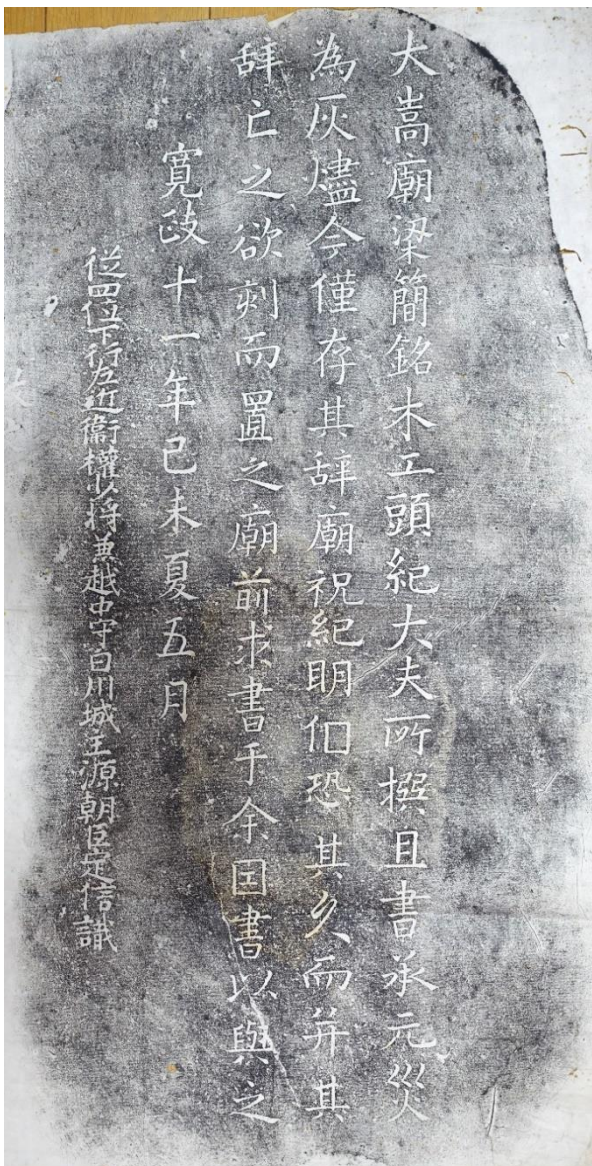 大嵩廟梁簡銘木工頭紀大夫所撰且書承元災
為灰燼今僅存其辞廟祝紀明佀恐其久而并其
辞亡之欲刻而置之廟前求書于余因書以與之
寛政十一年己未夏五月
従四位下行左近衛権少将兼越中守白川城主源朝臣定信識